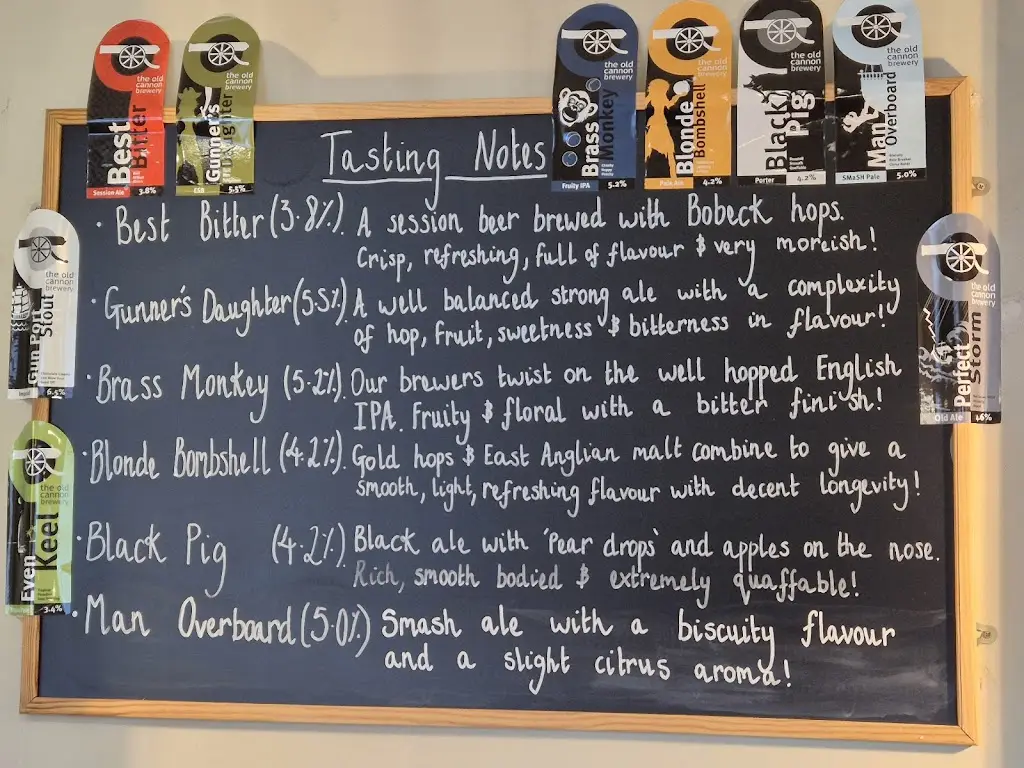 the old cannon brewery
Best Bitter
Session Ale 3.8%
the old cannon brewery
Gunner's Daughter
ESB 5.5%
the old cannon brewery
Brass Monkey
Fruity IPA 5.2%
the old cannon brewery
Blonde Bombshell
Pale Ale 4.2%
the old cannon brewery
Black Pig
Porter 4.2%
the old cannon brewery
Man Overboard
SMaSH Pale 5.0%
the old cannon brewery
Gun Port Stout
6.5%
the old cannon brewery
Even Keel
3.4%
the old cannon brewery
Perfect Storm
Old Ale
Tasting Notes
· Best Bitter (3.8%). A session beer brewed with Bobeck hops.
Crisp, refreshing, full of flavour & very moreish!
· Gunner's Daughter (5.5%). A well balanced strong ale with a complexity
of hop, fruit, sweetness & bitterness in flavour!
· Brass Monkey (5.2%). Our brewers twist on the well hopped English
IPA. Fruity & floral with a bitter finish!
· Blonde Bombshell (4.2%). Gold hops & East Anglian malt combine to give a
smooth, light, refreshing flavour with decent longevity!
· Black Pig (4.2%) Black ale with 'Pear drops' and apples on the nose.
Rich, smooth bodied & extremely quaffable!
· Man Overboard (5.0%) Smash ale with a biscuity flavour
and a slight citrus aroma!